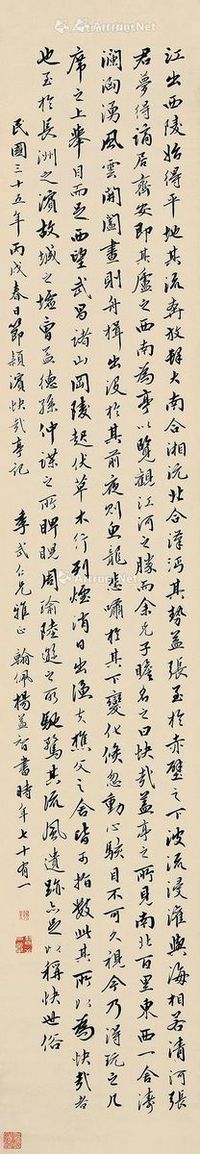 江出西陵始得平地其流奔放肆大南合湘沅北合漢沔其勢益張至於赤壁之下波流浸灌與海相若清河張
君夢得謫居齊安即其廬之西南為亭以覽觀江河之勝而余兄子瞻名之曰快哉蓋亭之所見南北百里東西一舍濤
瀾洶湧風雲開闔晝則舟楫出沒於其前夜則魚龍悲嘯於其下變化倏忽動心駭目不可久視今乃得玩之几
席之上舉目而足西望武昌諸山岡陵起伏草木行列煙消日出漁夫樵父之舍皆可指數此其所以為快哉者
也至於長洲之濱故城之墟曹孟德孫仲謀之所睥睨周瑜陸遜之所馳騖其流風遺跡亦足以稱快世俗
民國三十五年丙戌春日節潁濱快哉亭記 季武仁兄雅正 翰佩楊書時年七十有一